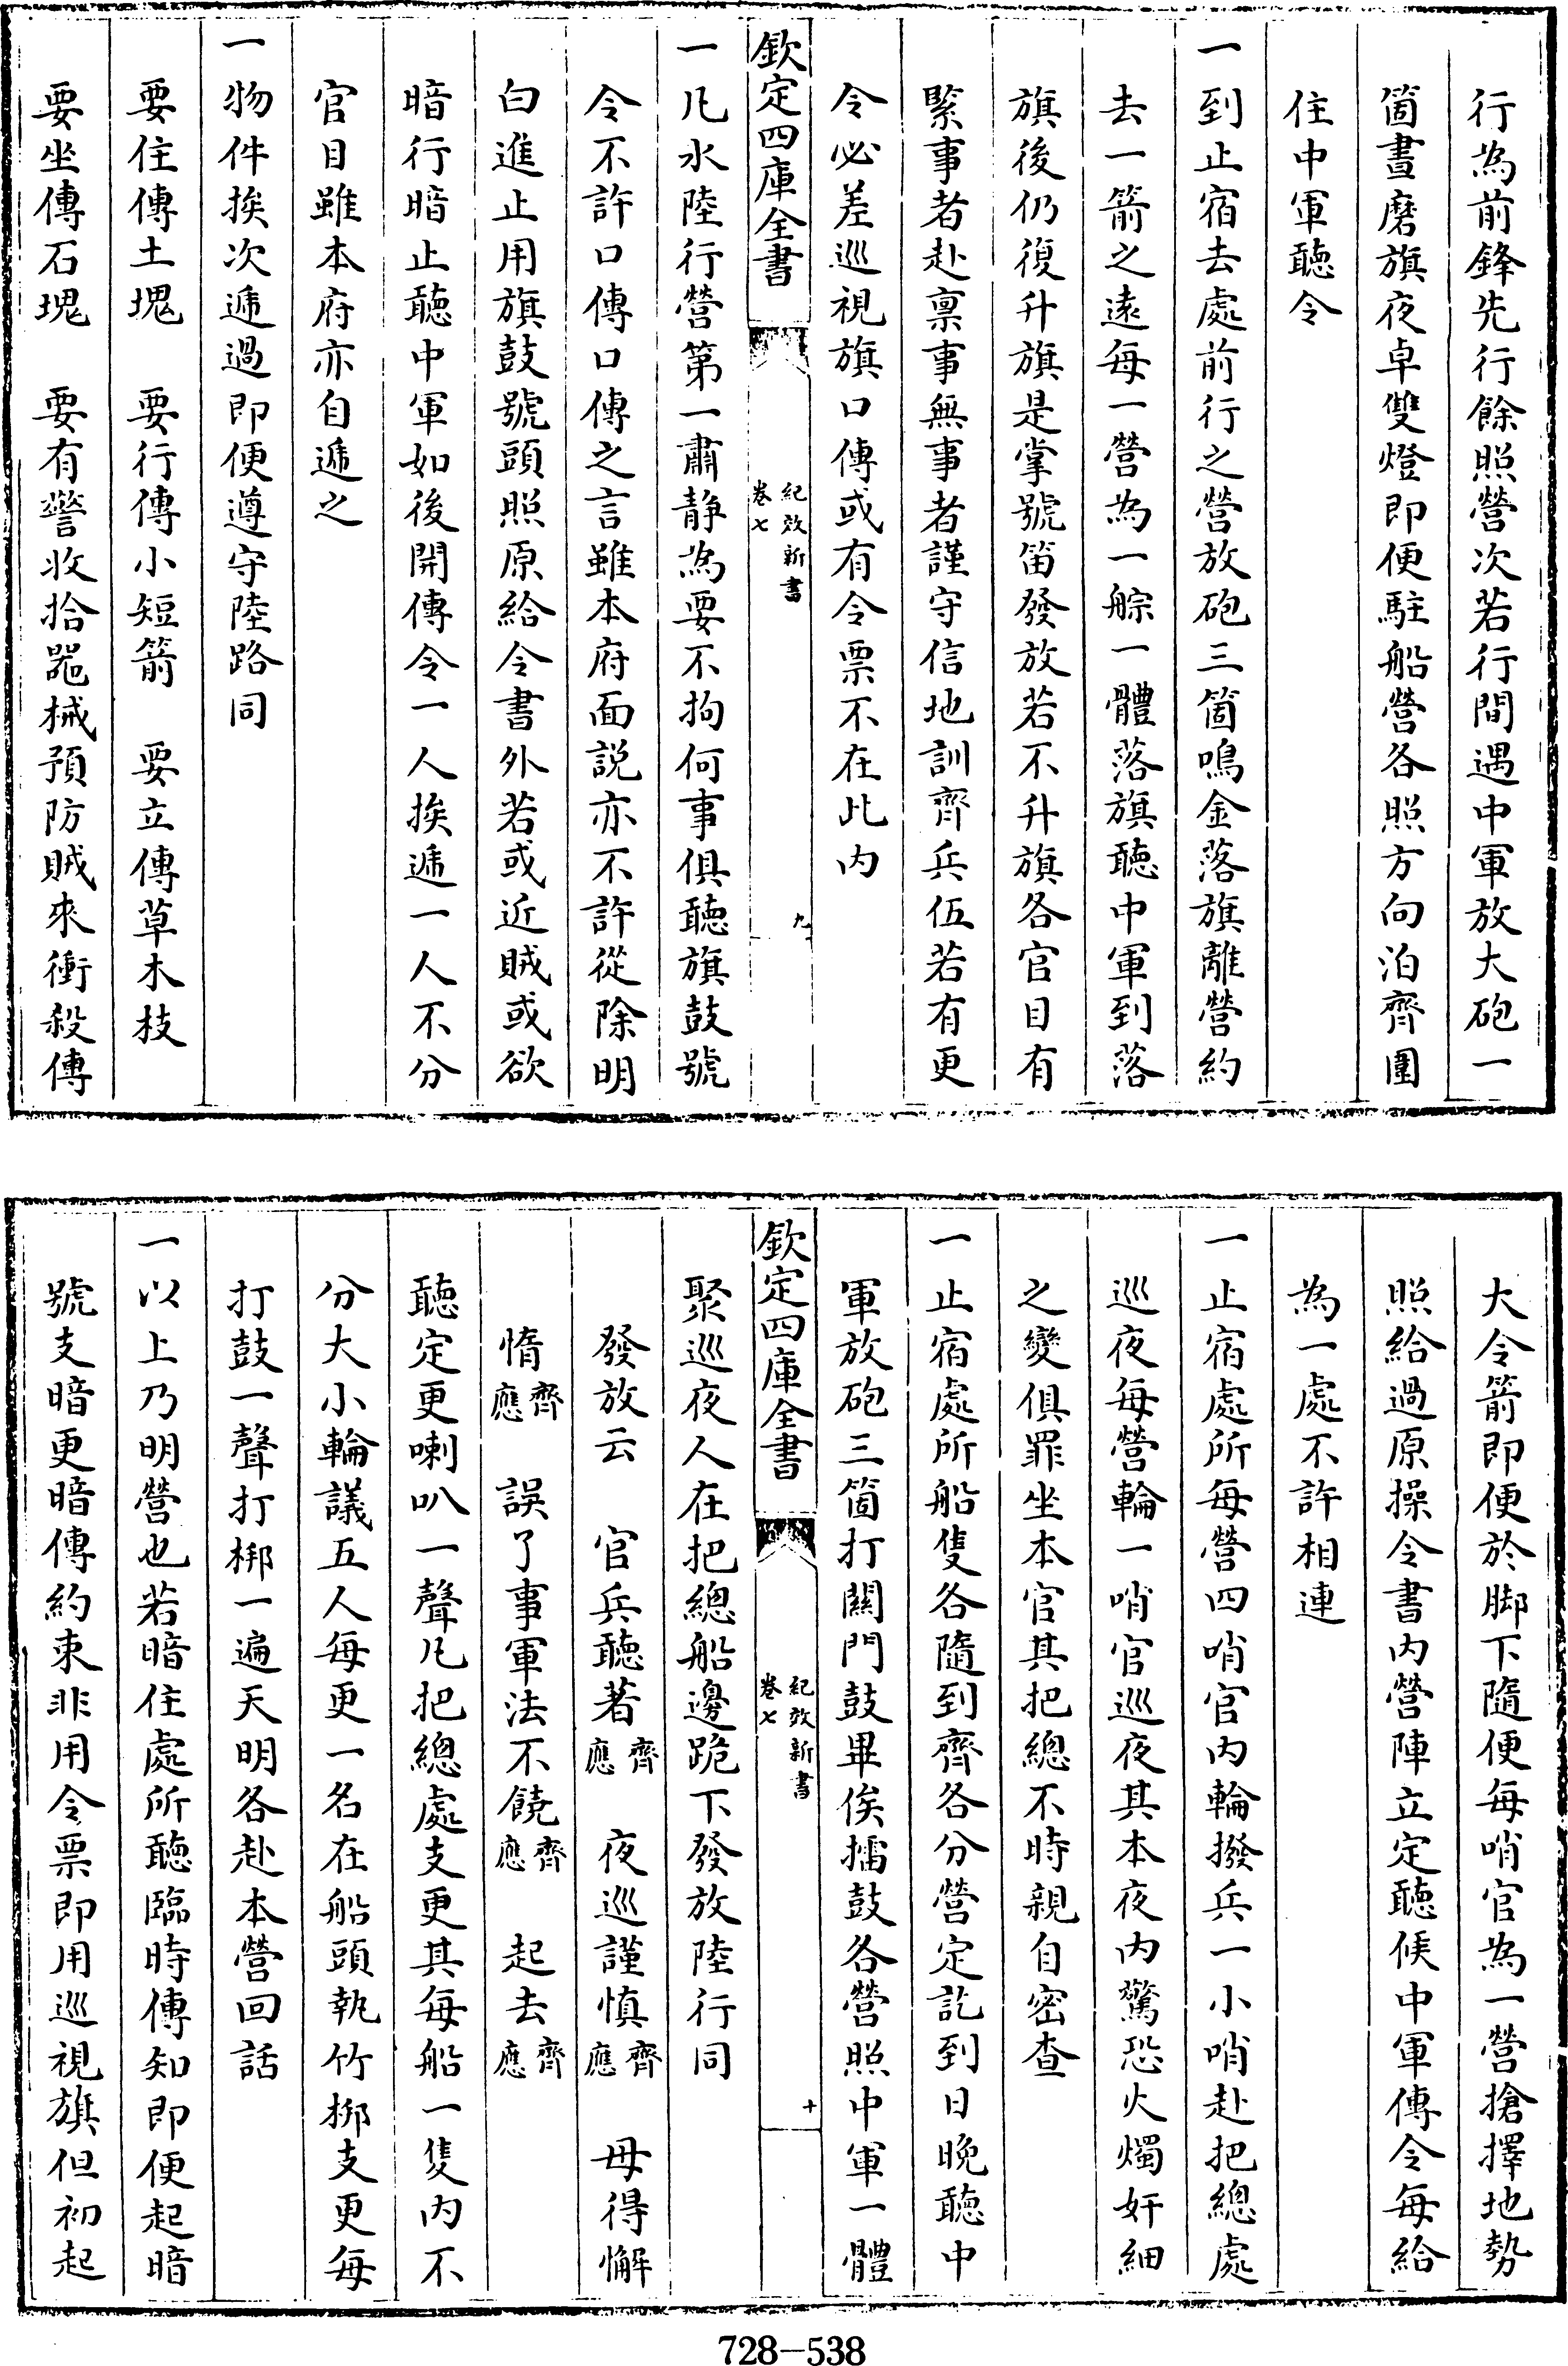 行為前鋒先行餘照營次若行間遇中軍放大砲一
箇晝磨旗夜卓雙燈即便駐船營各照方向泊齊圍
住中軍聽令
一到止宿去處前行之營放砲三箇鳴金落旗離營約
去一箭之遠每一營為一䑸一體落旗聽中軍到落
旗後仍復升旗是掌號笛發放若不升旗各官目有
緊事者赴禀事無事者謹守信地訓齊兵伍若有更
令必差巡視旗口傳或有令票不在此内
欽定四庫全書
紀效新書
卷七
九
一凡水陸行營第一肅静為要不拘何事俱聽旗鼓號
令不許口傳口傳之言雖本府面説亦不許從除明
白進止用旗鼓號頭照原給令書外若或近賊或欲
暗行暗止聽中軍如後開傳令一人挨遞一人不分
官目雖本府亦自遞之
一物件挨次遞過即便遵守陸路同
要住傳土塊　要行傳小短箭　要立傳草木枝
要坐傳石塊　要有警收拾器械預防賊來衝殺傳
大令箭即便於脚下隨便每哨官為一營搶擇地勢
照給過原操令書内營陣立定聽候中軍傳令每給
為一處不許相連
一止宿處所每營四哨官内輪撥兵一小哨赴把總處
巡夜每營輪一哨官巡夜其本夜内驚恐火燭奸細
之變俱罪坐本官其把總不時親自密查
一止宿處所船隻各隨到齊各分營定訖到日晚聽中
軍放砲三箇打關門鼓畢俟擂鼓各營照中軍一體
欽定四庫全書
紀效新書
卷七
十
聚巡夜人在把總船邊跪下發放陸行同
發放云　官兵聽著齊應　夜巡謹慎齊應　毋得懈
惰齊應　誤了事軍法不饒齊應　起去齊應
聽定更喇叭一聲凡把總處支更其每船一隻内不
分大小輪議五人每更一名在船頭執竹梆支更每
打鼓一聲打梆一遍天明各赴本營回話
一以上乃明營也若暗住處所聽臨時傳知即便起暗
號支暗更暗傳約束非用令票即用巡視旗但初起
728-538